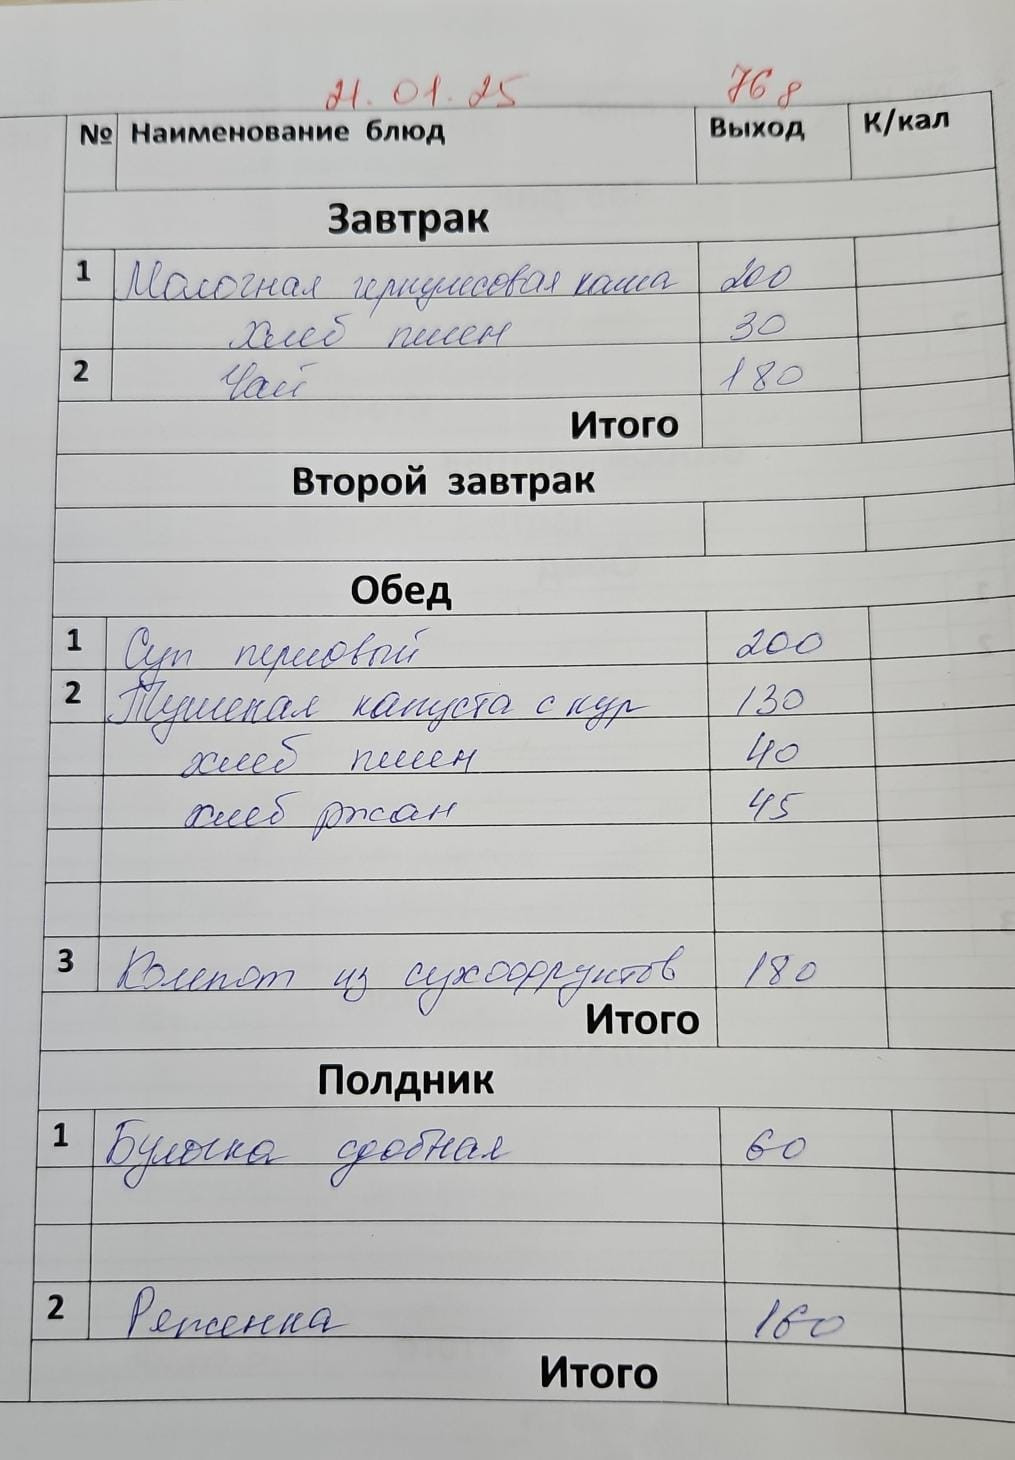 21.01.25 76 д
№ Наименование блюд Выход К/кал
Завтрак
1 Молочная геркулесовая каша 200
хлеб пшен 30
2 Чай 180
Итого
Второй завтрак
Обед
1 Суп перловый 200
2 Тушеная капуста с кур 130
хлеб пшен 40
хлеб ржан 45
3 Компот из сухофруктов 180
Итого
Полдник
1 Булочка сдобная 60
2 Ряженка 160
Итого